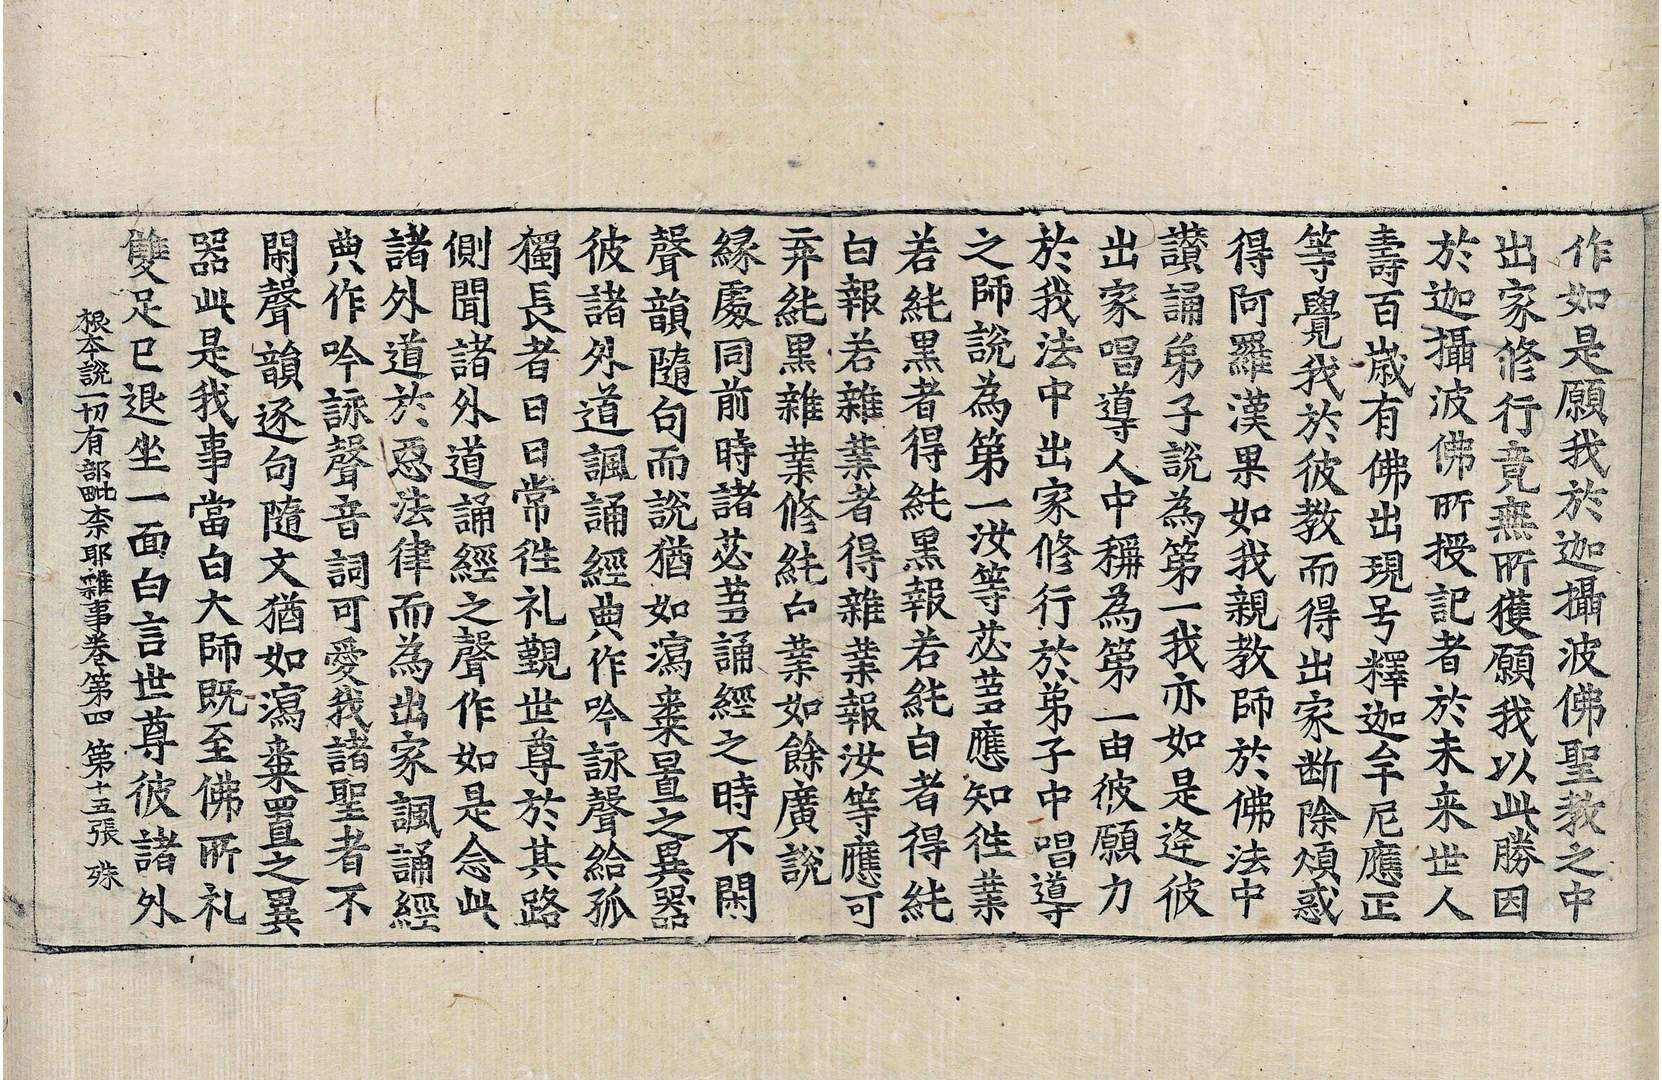 作如是願我於迦攝波佛聖教之中
出家修行竟無所獲願我以此勝因
於迦攝波佛所授記者於未来世人
壽百歲有佛出現号釋迦牟尼應正
等覺我於彼教而得出家断除煩惑
得阿羅漢果如我親教師於佛法中
讃誦弟子說為第一我亦如是逄彼
出家唱導人中稱為第一由彼願力
於我法中出家修行於弟子中唱導
之師說為第一汝等苾蒭應知徃業
若純黒者得純黒報若純白者得純
白報若雜業者得雜業報汝等應可
弃純黒雜業修純白業如餘廣說
縁處同前時諸苾蒭誦經之時不閑
聲韻隨句而說猶如瀉棗置之異器
彼諸外道諷誦經典作吟詠聲給孤
獨長者日日常徃礼覲世尊於其路
側聞諸外道誦經之聲作如是念此
諸外道於惡法律而為出家諷誦經
典作吟詠聲音詞可愛我諸聖者不
閑聲韻逐句隨文猶如瀉棗置之異
器此是我事當白大師既至佛所礼
雙足已退坐一面白言世尊彼諸外
根本說一切有部毗柰耶雜事卷第四 第十五張 殊